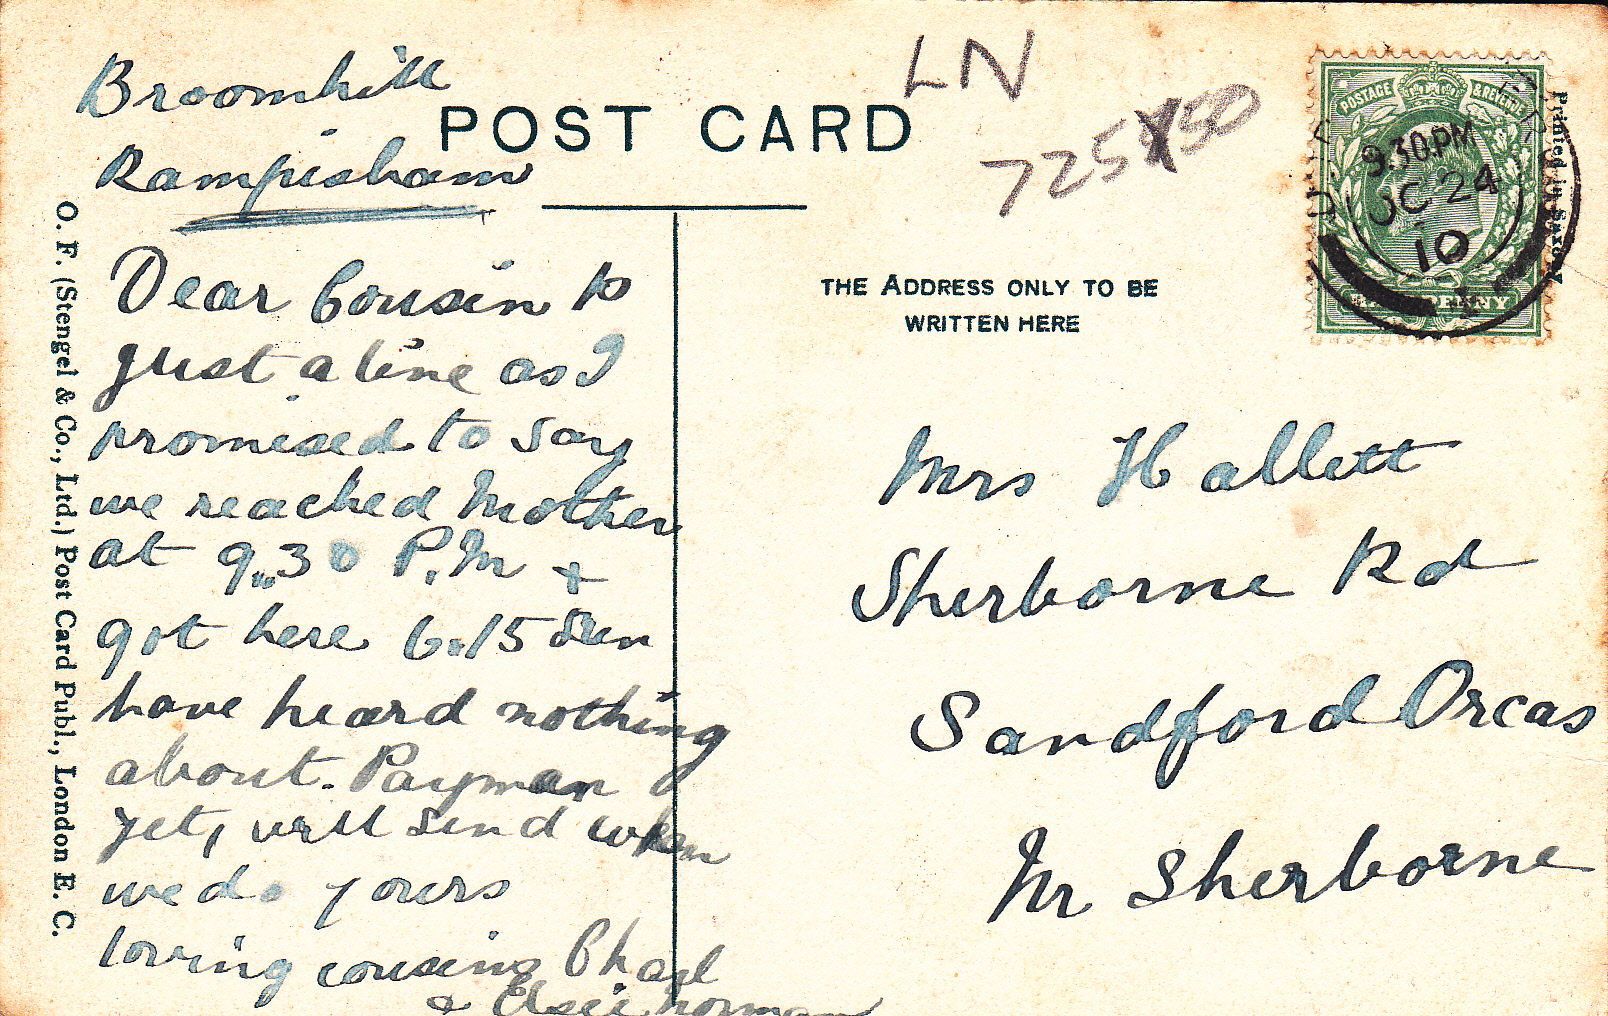 Broomhill
Rampisham
Dear Cousin
just a line as I
promised to say
we reached Mother
at 9.30 P.M +
got here 6.15 Sun
have heard nothing
about Payman
yet, will send when
we do yours
loving cousins
& Elsie Norman
POST CARD
LN
725
50
THE ADDRESS ONLY TO BE
WRITTEN HERE
Mrs Hallett
Sherborne Rd
Sandford Orcas
Nr Sherborne
POSTAGE & REVENUE
9.30PM
OC 24
10
Printed in Saxony
O. F. (Stengel & Co., Ltd.) Post Card Publ., London E. C.